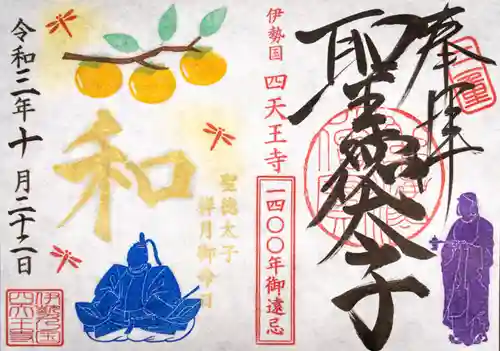 奉拝
聖徳太子
伊勢国 四天王寺
一四〇〇年御遠忌
聖徳太子
祥月御命日
和
令和三年十月二十二日